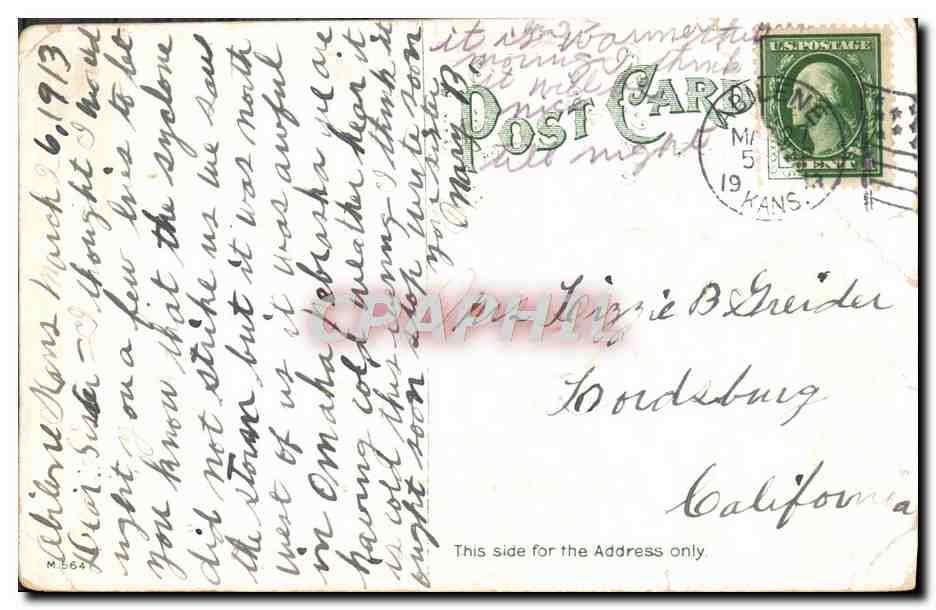 Abilene Kans March 6, 1913
Dear Sister - I thought I would
right you a few lines to let
you know that the syclone
did not strike us we saw
the storm but it was north
west of us it was awful
in Omaha Nebraska we are
having cold weather hear it
is cold this evening I think it
ought soon stop write soon
your sister
Mary B
it is warmer this
morning I think
it will
nice
all night
POST CARD
U.S. POSTAGE
CENT
ABILENE
MA
5
19
KANS.
Mrs Lizzie B Greider
Lordsburg
California
This side for the Address only.
M.564
CPAPHIL